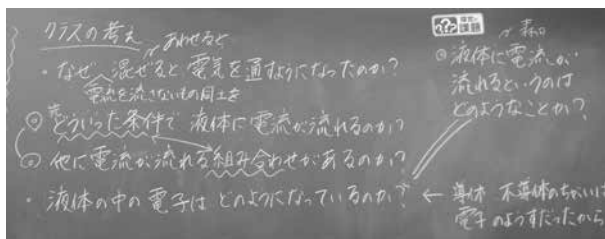 クラスの考え
あわせると
・なぜ 混ぜると 電気を通すようになったのか?
電流を流さないもの同士を
◎どういった条件で 液体に電流が流れるのか?
◎他に電流が流れる組み合わせがあるのか?
・液体の中の電子は どのようになっているのか?
← 導体 不導体のちがいは
電子のようすだったから
課題
◎液体に電流が
流れるというのは
どのようなことか?